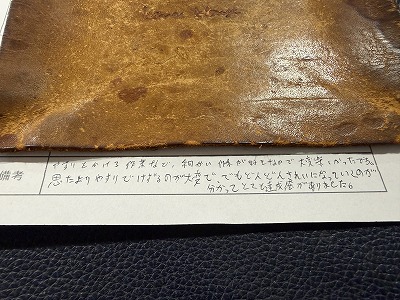 備考
やすりをかける作業など、細かい作業が好きなので大変楽しかったです。
思ったよりやすりでけずるのが大変で、でもどんどんきれいになっていくのが
分かってとても達成感がありました。